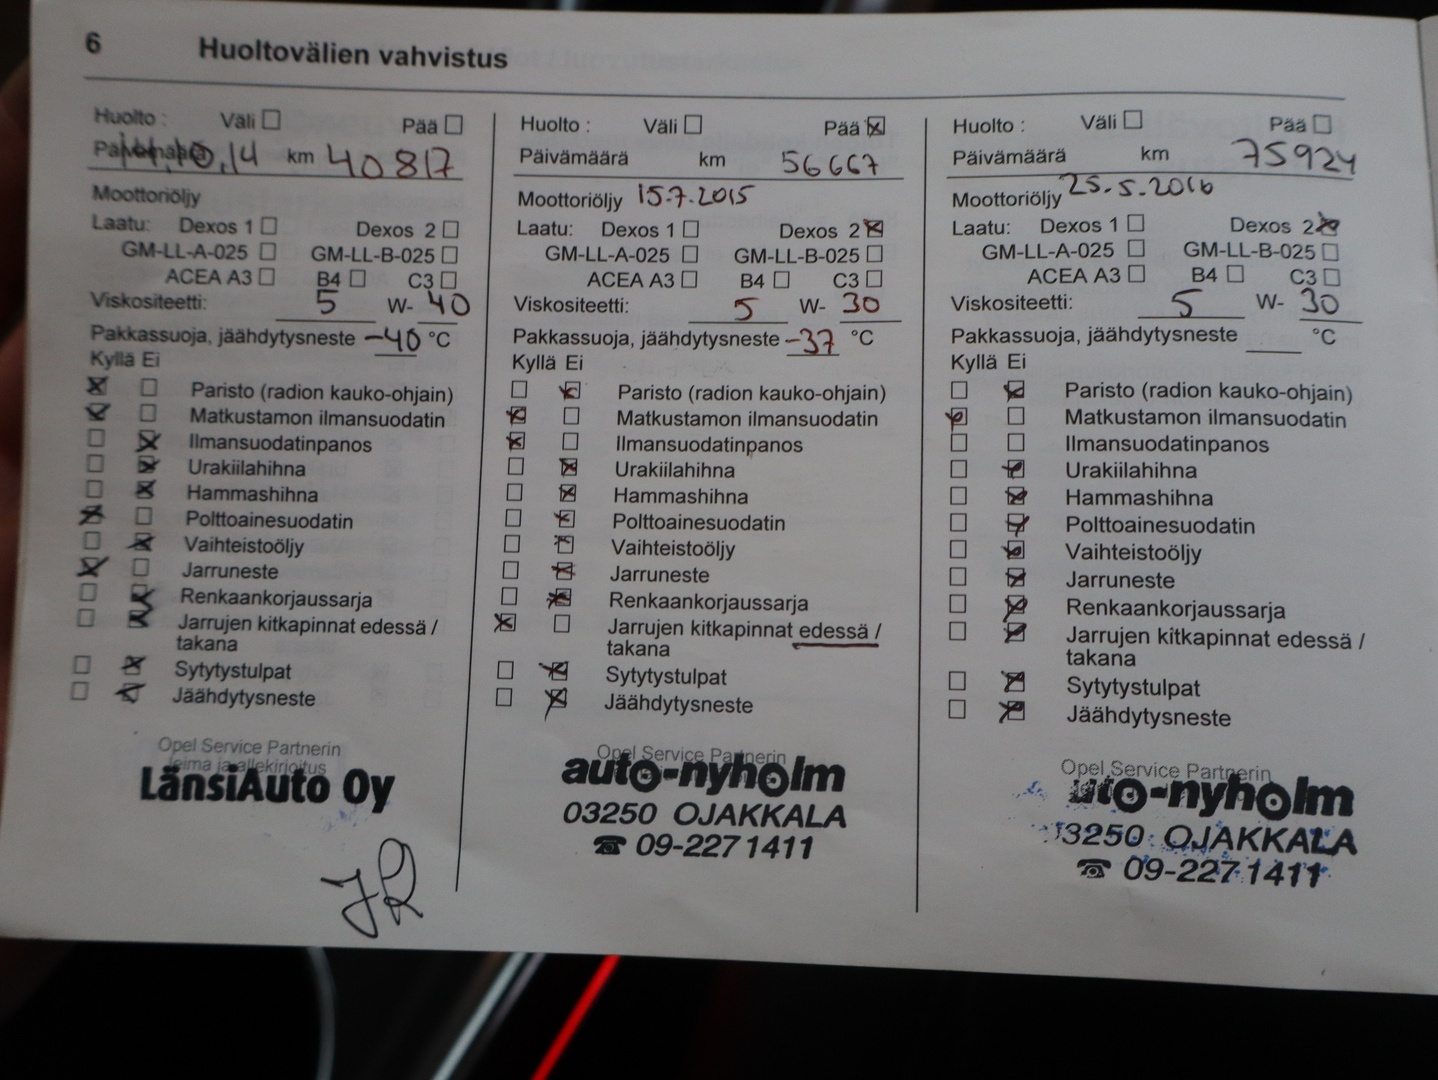 6 Huoltovälien vahvistus
Huolto : Väli ☐ Pää ☐
Päivämäärä 14.10.14 km 40817
Moottoriöljy
Laatu: Dexos 1 ☐ Dexos 2 ☐
GM-LL-A-025 ☐ GM-LL-B-025 ☐
ACEA A3 ☐ B4 ☐ C3 ☐
Viskositeetti: 5 W- 40
Pakkassuoja, jäähdytysneste -40 °C
Kyllä Ei
☒ ☐ Paristo (radion kauko-ohjain)
☒ ☐ Matkustamon ilmansuodatin
☐ ☒ Ilmansuodatinpanos
☐ ☒ Urakiilahihna
☐ ☒ Hammashihna
☒ ☐ Polttoainesuodatin
☐ ☒ Vaihteistoöljy
☒ ☐ Jarruneste
☐ ☒ Renkaankorjaussarja
☐ ☒ Jarrujen kitkapinnat edessä /
takana
☐ ☒ Sytytystulpat
☐ ☒ Jäähdytysneste
Opel Service Partnerin
leima ja allekirjoitus
LänsiAuto Oy
Huolto : Väli ☐ Pää ☒
Päivämäärä km 56667
Moottoriöljy 15.7.2015
Laatu: Dexos 1 ☐ Dexos 2 ☒
GM-LL-A-025 ☐ GM-LL-B-025 ☐
ACEA A3 ☐ B4 ☐ C3 ☐
Viskositeetti: 5 W- 30
Pakkassuoja, jäähdytysneste -37 °C
Kyllä Ei
☐ ☒ Paristo (radion kauko-ohjain)
☒ ☐ Matkustamon ilmansuodatin
☒ ☐ Ilmansuodatinpanos
☐ ☒ Urakiilahihna
☐ ☒ Hammashihna
☐ ☒ Polttoainesuodatin
☐ ☒ Vaihteistoöljy
☐ ☒ Jarruneste
☐ ☒ Renkaankorjaussarja
☒ ☐ Jarrujen kitkapinnat edessä /
takana
☐ ☒ Sytytystulpat
☐ ☒ Jäähdytysneste
Opel Service Partnerin
auto-nyholm
03250 OJAKKALA
☎ 09-227 1411
Huolto : Väli ☐ Pää ☐
Päivämäärä km 75924
Moottoriöljy 25.5.2016
Laatu: Dexos 1 ☐ Dexos 2 ☒
GM-LL-A-025 ☐ GM-LL-B-025 ☐
ACEA A3 ☐ B4 ☐ C3 ☐
Viskositeetti: 5 W- 30
Pakkassuoja, jäähdytysneste ___ °C
Kyllä Ei
☐ ☒ Paristo (radion kauko-ohjain)
☒ ☐ Matkustamon ilmansuodatin
☐ ☐ Ilmansuodatinpanos
☐ ☒ Urakiilahihna
☐ ☒ Hammashihna
☐ ☒ Polttoainesuodatin
☐ ☒ Vaihteistoöljy
☐ ☒ Jarruneste
☐ ☒ Renkaankorjaussarja
☐ ☒ Jarrujen kitkapinnat edessä /
takana
☐ ☒ Sytytystulpat
☐ ☒ Jäähdytysneste
Opel Service Partnerin
auto-nyholm
3250 OJAKKALA
☎ 09-227 1411